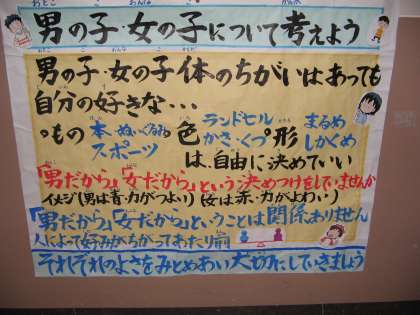 男の子・女の子について考えよう
男の子・女の子体のちがいはあっても
自分の好きな・・・
○もの 本・ぬいぐるみ スポーツ 色 ランドセル かさ・くつ ○形 まるめ しかくめ
は、自由に決めていい
「男だから」「女だから」という決めつけをしていませんか
イメージ(男は青・力がつよい)(女は赤・力がよわい)
「男だから」「女だから」ということは関係ありません
人によって好みがちがってあたり前
それぞれのよさをみとめあい大切にしていきましょう